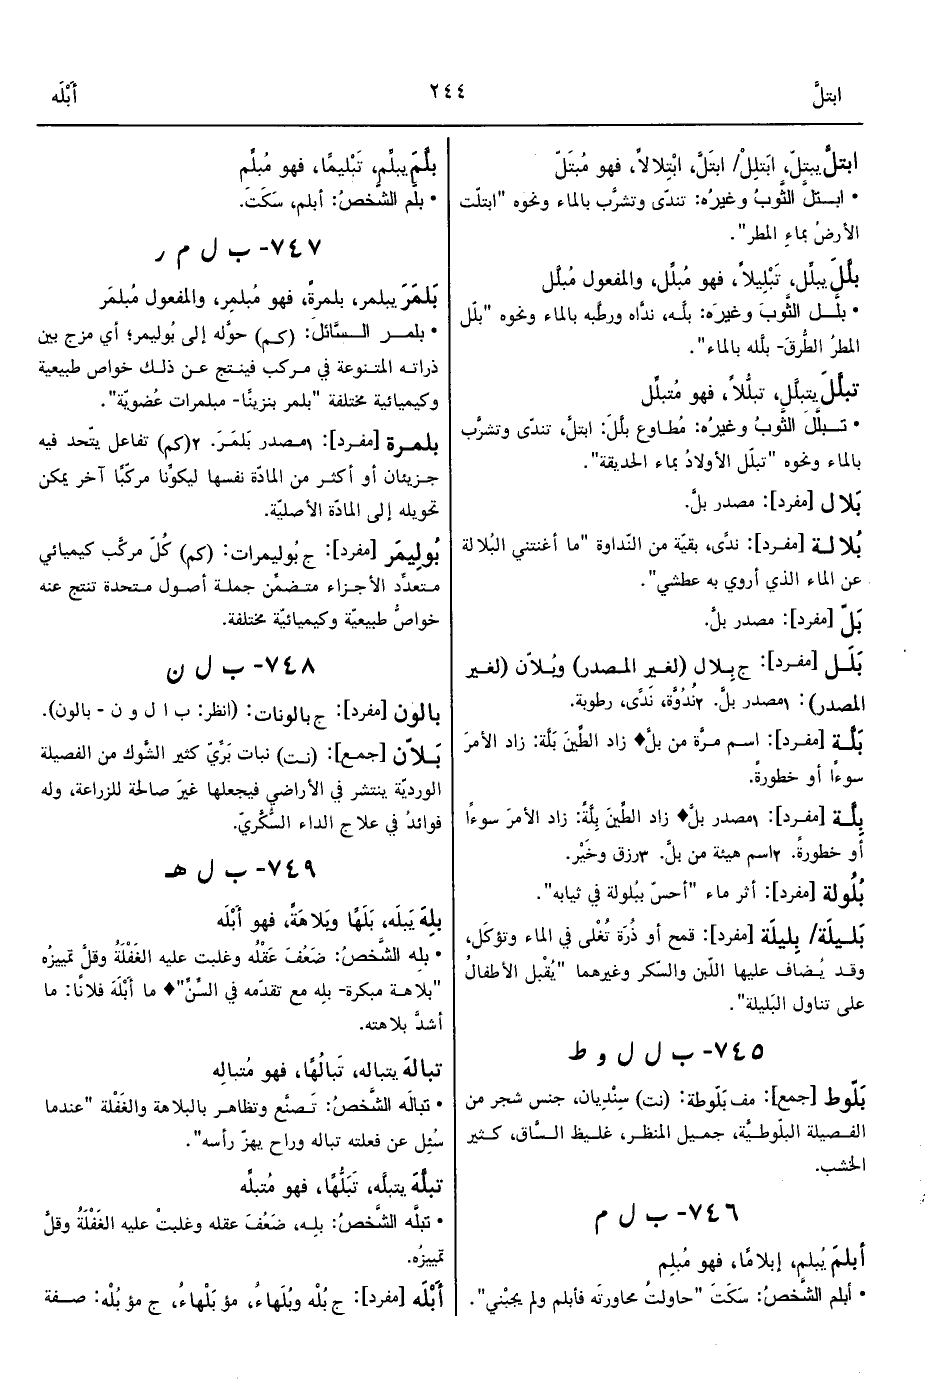 ابتلَّ
٢٤٤
أَبْلَه
ابتلَّ يبتلّ، ابَتلِلْ/ ابتَلَّ، ابْتِلالاً، فهو مُبتَلّ
• ابــتلَّ الثَّوبُ وغيرُه: تندّى وتشرَّب بالماء ونحوه "ابتلّت
الأرضُ بماءِ المطر".
بلَّلَ يبلِّل، تَبْلِيلاً، فهو مُبلِّل، والمفعول مُبلَّل
• بلَّــل الثَّوبَ وغيرَه: بلَّـه، ندّاه ورطَّبه بالماء ونحوه "بلّل
المطرُ الطُّرقَ- بلَّله بالماء".
تبلَّلَ يتبلَّل، تبلُّلاً، فهو مُتبلِّل
• تــبلَّلَ الثَّوبُ وغيرُه: مُطـاوع بلَّلَ: ابتلَّ، تندّى وتشرَّب
بالماء ونحوه "تبلّل الأولادُ بماء الحديقة".
بَلال [مفرد]: مصدر بلَّ.
بُلالـة [مفـرد]: ندًى، بقيّة من النّداوة "ما أغنتني البُلالة
عن الماء الذي أروي به عطشي".
بَلّ [مفرد]: مصدر بلَّ.
بَلَــل [مفـرد]: ج بِلال (لغير المـصدر) وبُلاّن (لغير
المصدر): ١مصدر بلَّ. ٢نُدُوَّة، نَدًى، رطوبة.
بَلَّة [مفرد]: اسـم مـرَّة من بلَّ♦ زاد الطِّينَ بَلّة: زاد الأمرَ
سوءًا أو خطورةً.
بِلَّـة [مفـرد]: ١مصدر بلَّ♦ زاد الطِّينَ بِلَّةً: زاد الأمرَ سوءًا
أو خطورةً. ٢اسم هيئة من بلَّ. ٣رزق وخَيْر.
بُلُولة [مفرد]: أثر ماء "أحسّ ببُلولة في ثيابه".
بَلـيلَة/ بِليلَة [مفرد]: قمح أو ذُرَة تُغْلى في الماء وتؤكَل،
وقـد يُـضاف عليها اللّبن والسّكر وغيرهما "يُقْبل الأطفالُ
على تناول البَليلة".
٧٤٥- ب ل ل و ط
بَلّوط [جمع]: مف بَلّوطة: (نت) سِنْدِيان، جنس شجر من
الفـصيلة البلّوطيَّـة، جمـيل المنظـر، غلـيظ السّاق، كـثير
الخشب.
٧٤٦- ب ل م
أبلمَ يُبلم، إبلامًا، فهو مُبلِم
• أبلم الشَّخصُ: سَكَتَ "حاولتُ محاورتَه فأبلم ولم يجبْني".
بلَّمَ يبلِّم، تَبْليمًا، فهو مُبلِّم
• بلّم الشَّخصُ: أبلم، سَكَتَ.
٧٤٧- ب ل م ر
بَلمَرَ يبلمر، بلمرةً، فهو مُبلمِر، والمفعول مُبلمَر
• بلمــر الــسَّائل: (كـم) حوَّله إلى بُوليمر؛ أي مزج بين
ذراتـه المتـنوعة في مـركب فينـتج عـن ذلـك خواص طبيعية
وكيميائية مختلفة "بلمر بنزينًا- مبلمرات عُضويّة".
بلمـرة [مفـرد]: ١مـصدر بَلمَـرَ. ٢(كم) تفاعل يتّحد فيه
جـزيئان أو أكثـر من المادّة نفسها ليكوِّنا مركّبًا آخر يمكن
تحويله إلى المادّة الأصليّة.
بُولِيمَر [مفرد]: ج بُوليمرات: (كم) كُلّ مركَّب كيميائي
متعدِّد الأجـزاء متـضمِّن جملـة أصـول متـحدة تنتج عنه
خواصُّ طبيعيّة وكيميائيّة مختلفة.
٧٤٨- ب ل ن
بالون [مفرد]: ج بالونات: (انظر: ب ا ل و ن - بالون).
بَـلاّن [جمـع]: (نـت) نبات بَرّيّ كثير الشَّوك من الفصيلة
الورديّة ينتشر في الأراضي فيجعلها غيرَ صالحة للزراعة، وله
فوائدُ في علاج الداء السُّكَّريّ.
٧٤٩- ب ل هـ
بلِهَ يَبلَه، بَلَهًا وبَلاهَةً، فهو أبْلَه
• بلِه الشَّخصُ: ضَعُفَ عَقْلُه وغلبت عليه الغَفْلَةُ وقلَّ تمييزُه
"بلاهـة مبكرة- بلِه مع تقدّمه في السِّنّ"♦ ما أبْلَهَ فلانًا: ما
أشدَّ بلاهته.
تبالهَ يتباله، تَبالُهًا، فهو مُتبالِه
• تبالَه الشَّخصُ: تَصنَّع وتظاهر بالبلاهة والغَفْلة "عندما
سُئِل عن فعلته تباله وراح يهزّ رأسه".
تبلَّهَ يتبلَّه، تَبَلُّهًا، فهو مُتبلِّه
• تبلَّه الشَّخصُ: بلِـه، ضَعُفَ عقله وغلبتْ عليه الغَفْلَةُ وقلَّ
تمييزُه.
أَبْلَه [مفرد]: ج بُلْه وبُلَهاءُ، مؤ بَلْهاءُ، ج مؤ بُلْه: صــفة